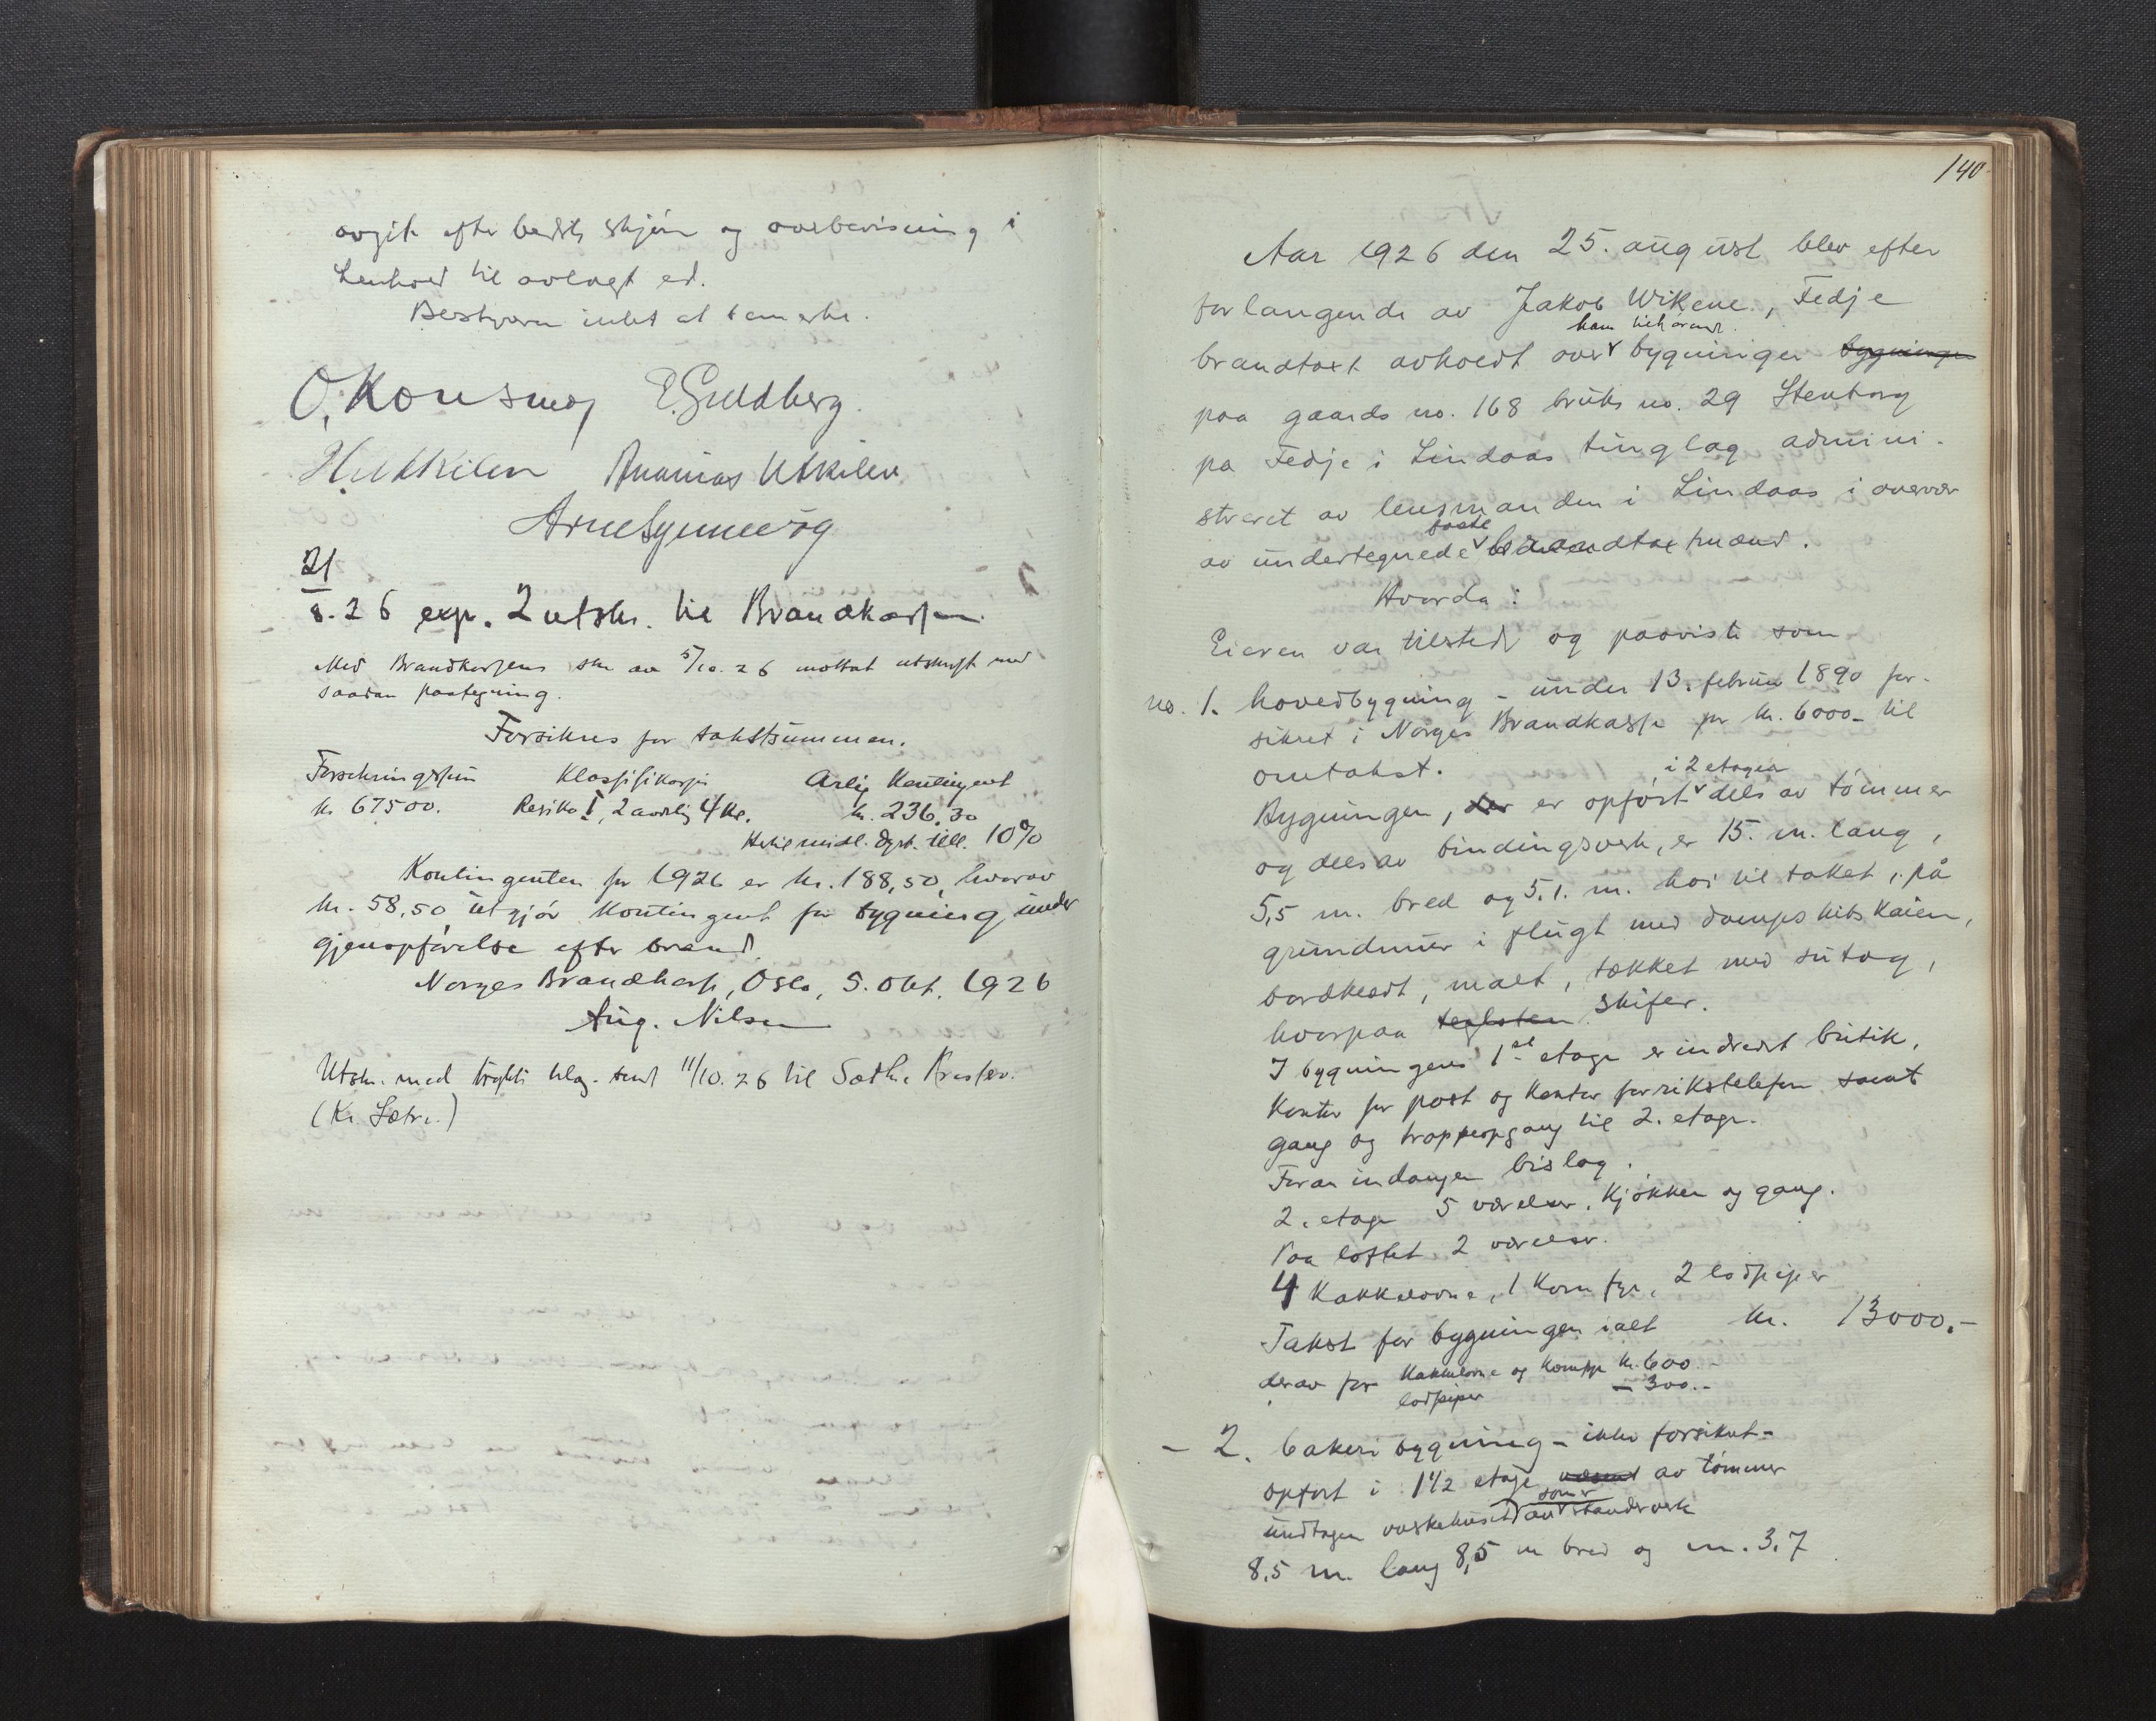 avgit efter bedste skjøn og overbevisning i
henhold til avlagt ed.
Bestyreren intet at bemerke.
O. Konsmog E. Guldberg.
H. Utkilen Ananias Utkilen
Arne Synnevåg
21
8. 26 exp. 2 utskr. til Brandkassen.
Med Brandkassens skr av 5/10. 26 mottat utskrift med
saadan paategning.
Forsikres for takstsummen.
Forsikringssum Klassifikasjon Årlig Kontingent
kr. 67500. Resiko I, 2 avdeling 4 kl. kr. 236,30
till. 10%
Kontingenten for 1926 er kr. 188,50, hvorav
kr. 58,50 utgjør kontingent for bygning under
gjenopførelse efter brand.
Norges Brandkasse, Oslo, 5. Okt. 1926
Aug. Nilsen
Utskr. med sendt 11/10. 26 til
(Kr. Sætre.)
140
Aar 1926 den 25. august blev efter
forlangende av Jakob Wikene, Fedje
ham tilhørende.
brandtaxt avholdt over bygninger bygninger
paa gaards no. 168 bruks no. 29 Stenborg
pa Fedje i Lindaas tinglag admini-
streret av lensmanden i Lindaas i overvær
faste
av undertegnede brandtaxtmænd.
Hvorda:
Eieren var tilstede og paaviste som
no. 1. hovedbygning - under 13. februar 1890 for-
sikret i Norges Brandkasse for kr. 6000.- til
omtakst.
i 2 etager
Bygningen, der er opført dels av tømmer
og dels av bindingsverk, er 15. m. lang,
5,5 m. bred og 5,1. m. høi til taket, på
grundmur i flugt med dampskibskaien,
bordklædt, malt, tækket med sutag,
hvorpaa teglsten skifer.
I bygningens 1ste etage er indredet butik,
kontor for post og kontor for rikstelefon samt
gang og trappeopgang til 2. etage.
Foran indgangen bislag.
2. etage 5 værelser, kjøkken og gang.
Paa loftet 2 værelser.
4 kakkelovne, 1 komfyr, 2 lodpiper
Takst for bygningen ialt kr. 13000.-
derav for kakkelovne og komfyr kr. 600.
lodpiper - 300.-
- 2. bakeribygning - ikke forsikret -
opført i 1 1/2 etage av tømmer
som er
undtagen vaskehuset av standverk
8,5 m. lang 8,5 m bred og m. 3,7